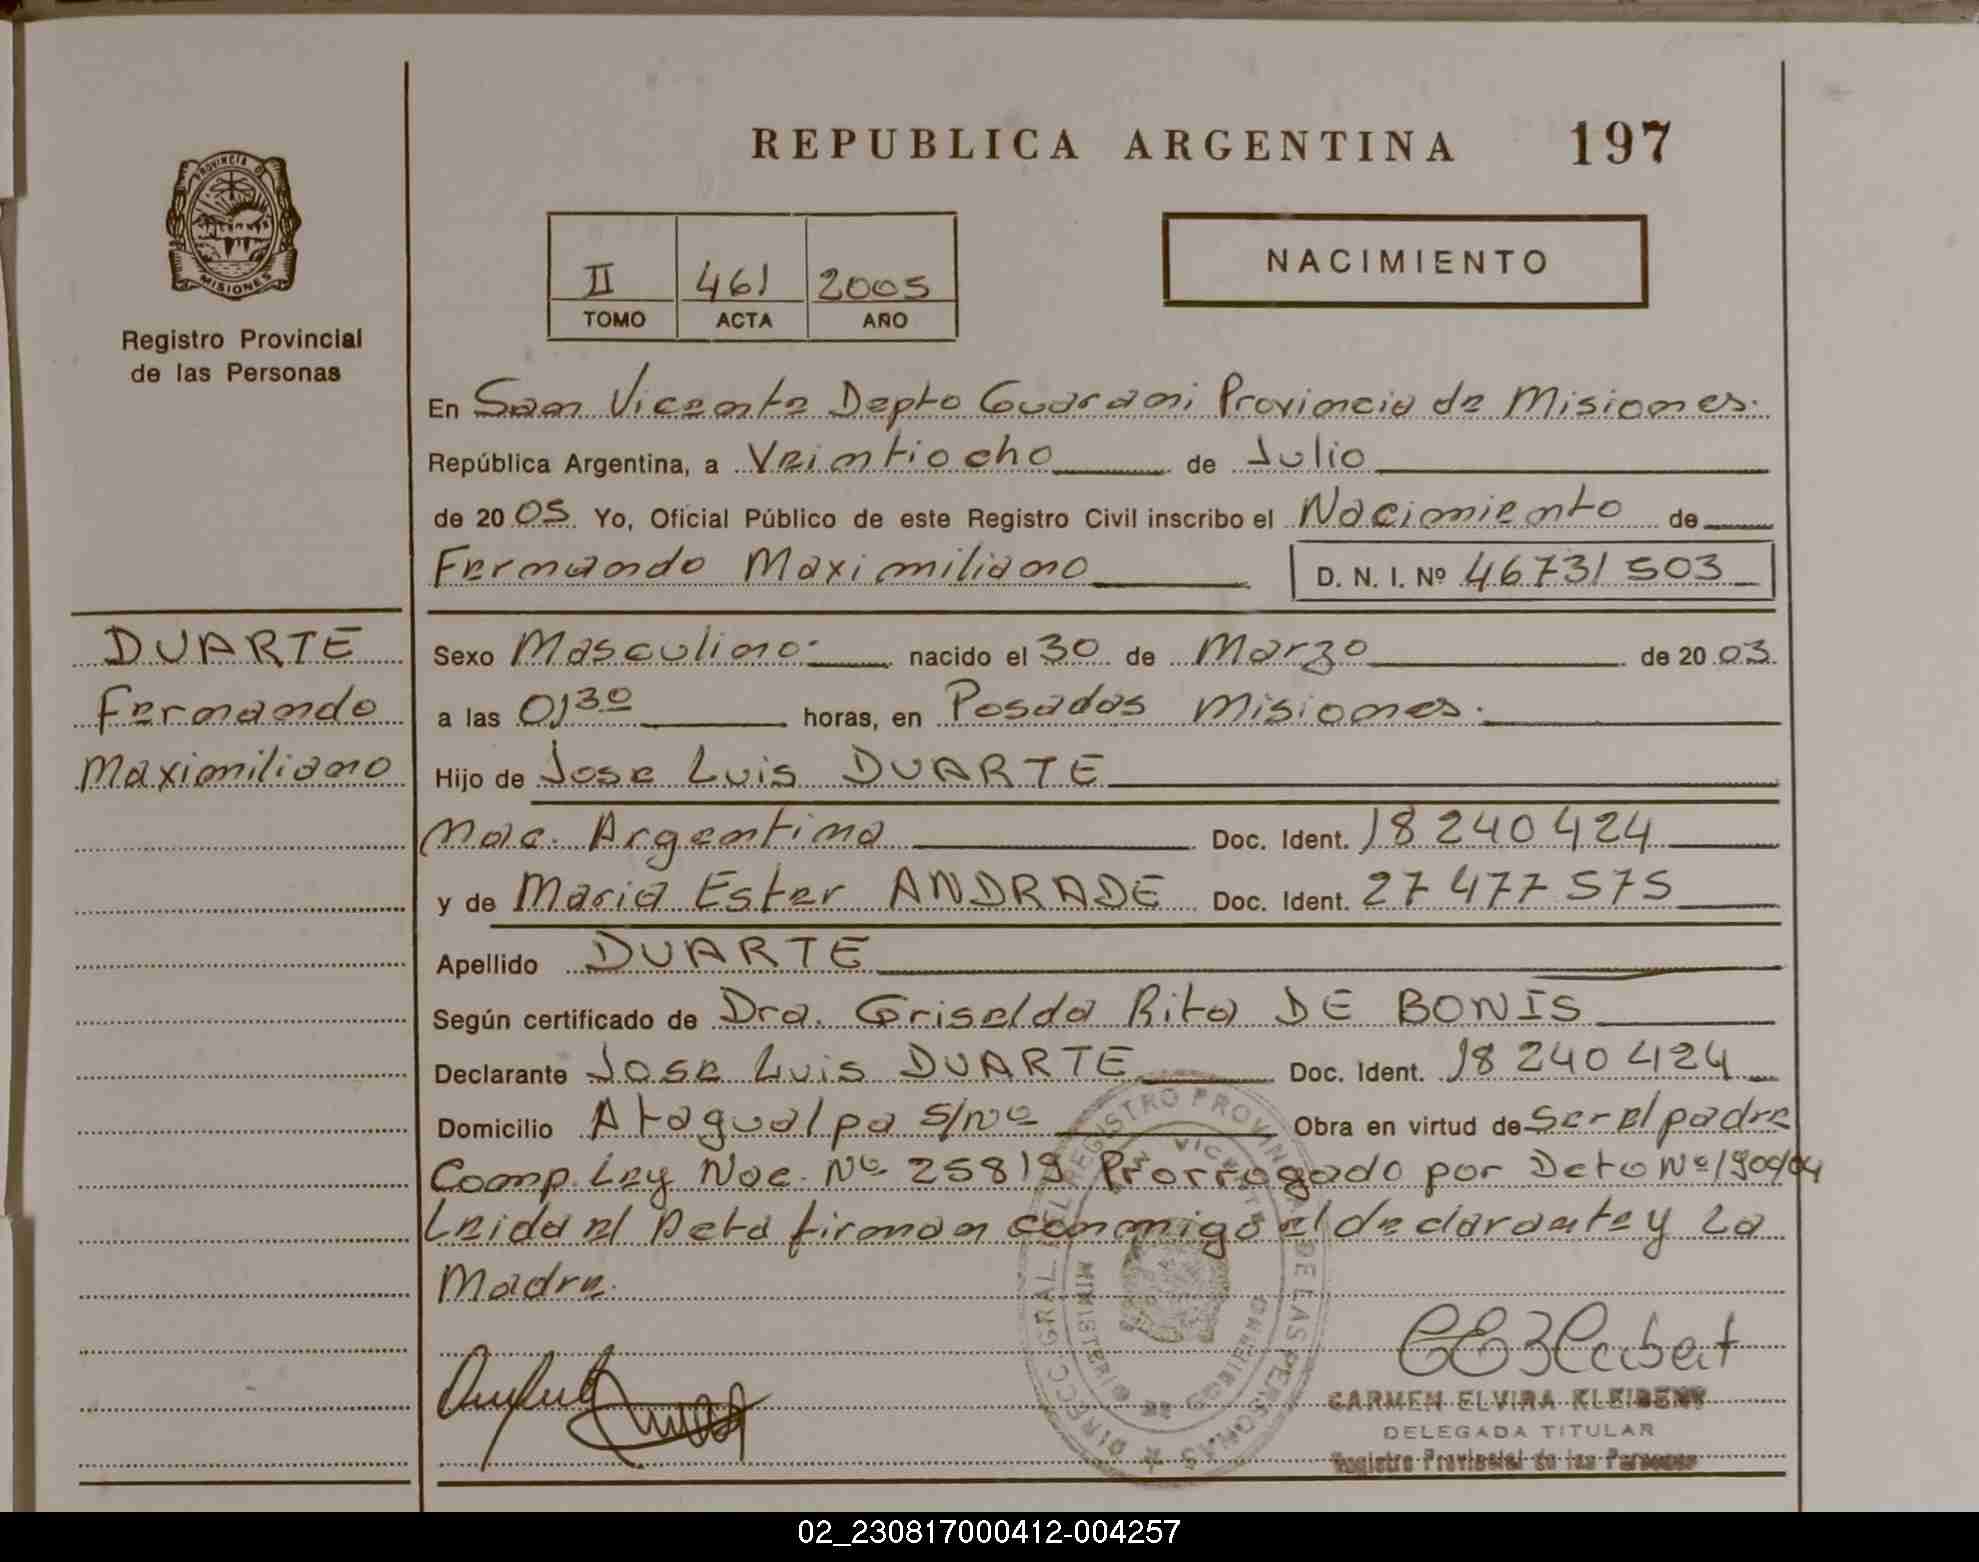 REPUBLICA ARGENTINA 197
PROVINCIA DE
MISIONES
Registro Provincial
de las Personas
II 461 2005
TOMO ACTA AÑO
NACIMIENTO
En San Vicente Depto Guarani Provincia de Misiones.
República Argentina, a Veintiocho de Julio
de 2005 Yo, Oficial Público de este Registro Civil inscribo el Nacimiento de
Fernando Maximiliano D. N. I. Nº 46731503
DUARTE
Fernando
Maximiliano
Sexo Masculino. nacido el 30 de Marzo de 2003.
a las 01 30 horas, en Posadas Misiones.
Hijo de Jose Luis DUARTE
Nac. Argentina Doc. Ident. 18240424
y de Maria Ester ANDRADE Doc. Ident. 27477575
Apellido DUARTE
Según certificado de Dra. Griselda Rita DE BONIS
Declarante Jose Luis DUARTE Doc. Ident. 18240424
Domicilio Atagualpa S/nº Obra en virtud de Ser el padre
Comp. Ley Nac. Nº 25819 Prorrogado por Dcto Nº 1900/04
Leida el Acta firman conmigo el declarante y La
Madre.
DIRECC. GRAL. DEL REGISTRO PROVINCIAL DE LAS PERSONAS
MINISTERIO DE GOBIERNO
SAN VICENTE
CARMEN ELVIRA
DELEGADA TITULAR
Registro Provincial de las Personas
02_230817000412-004257